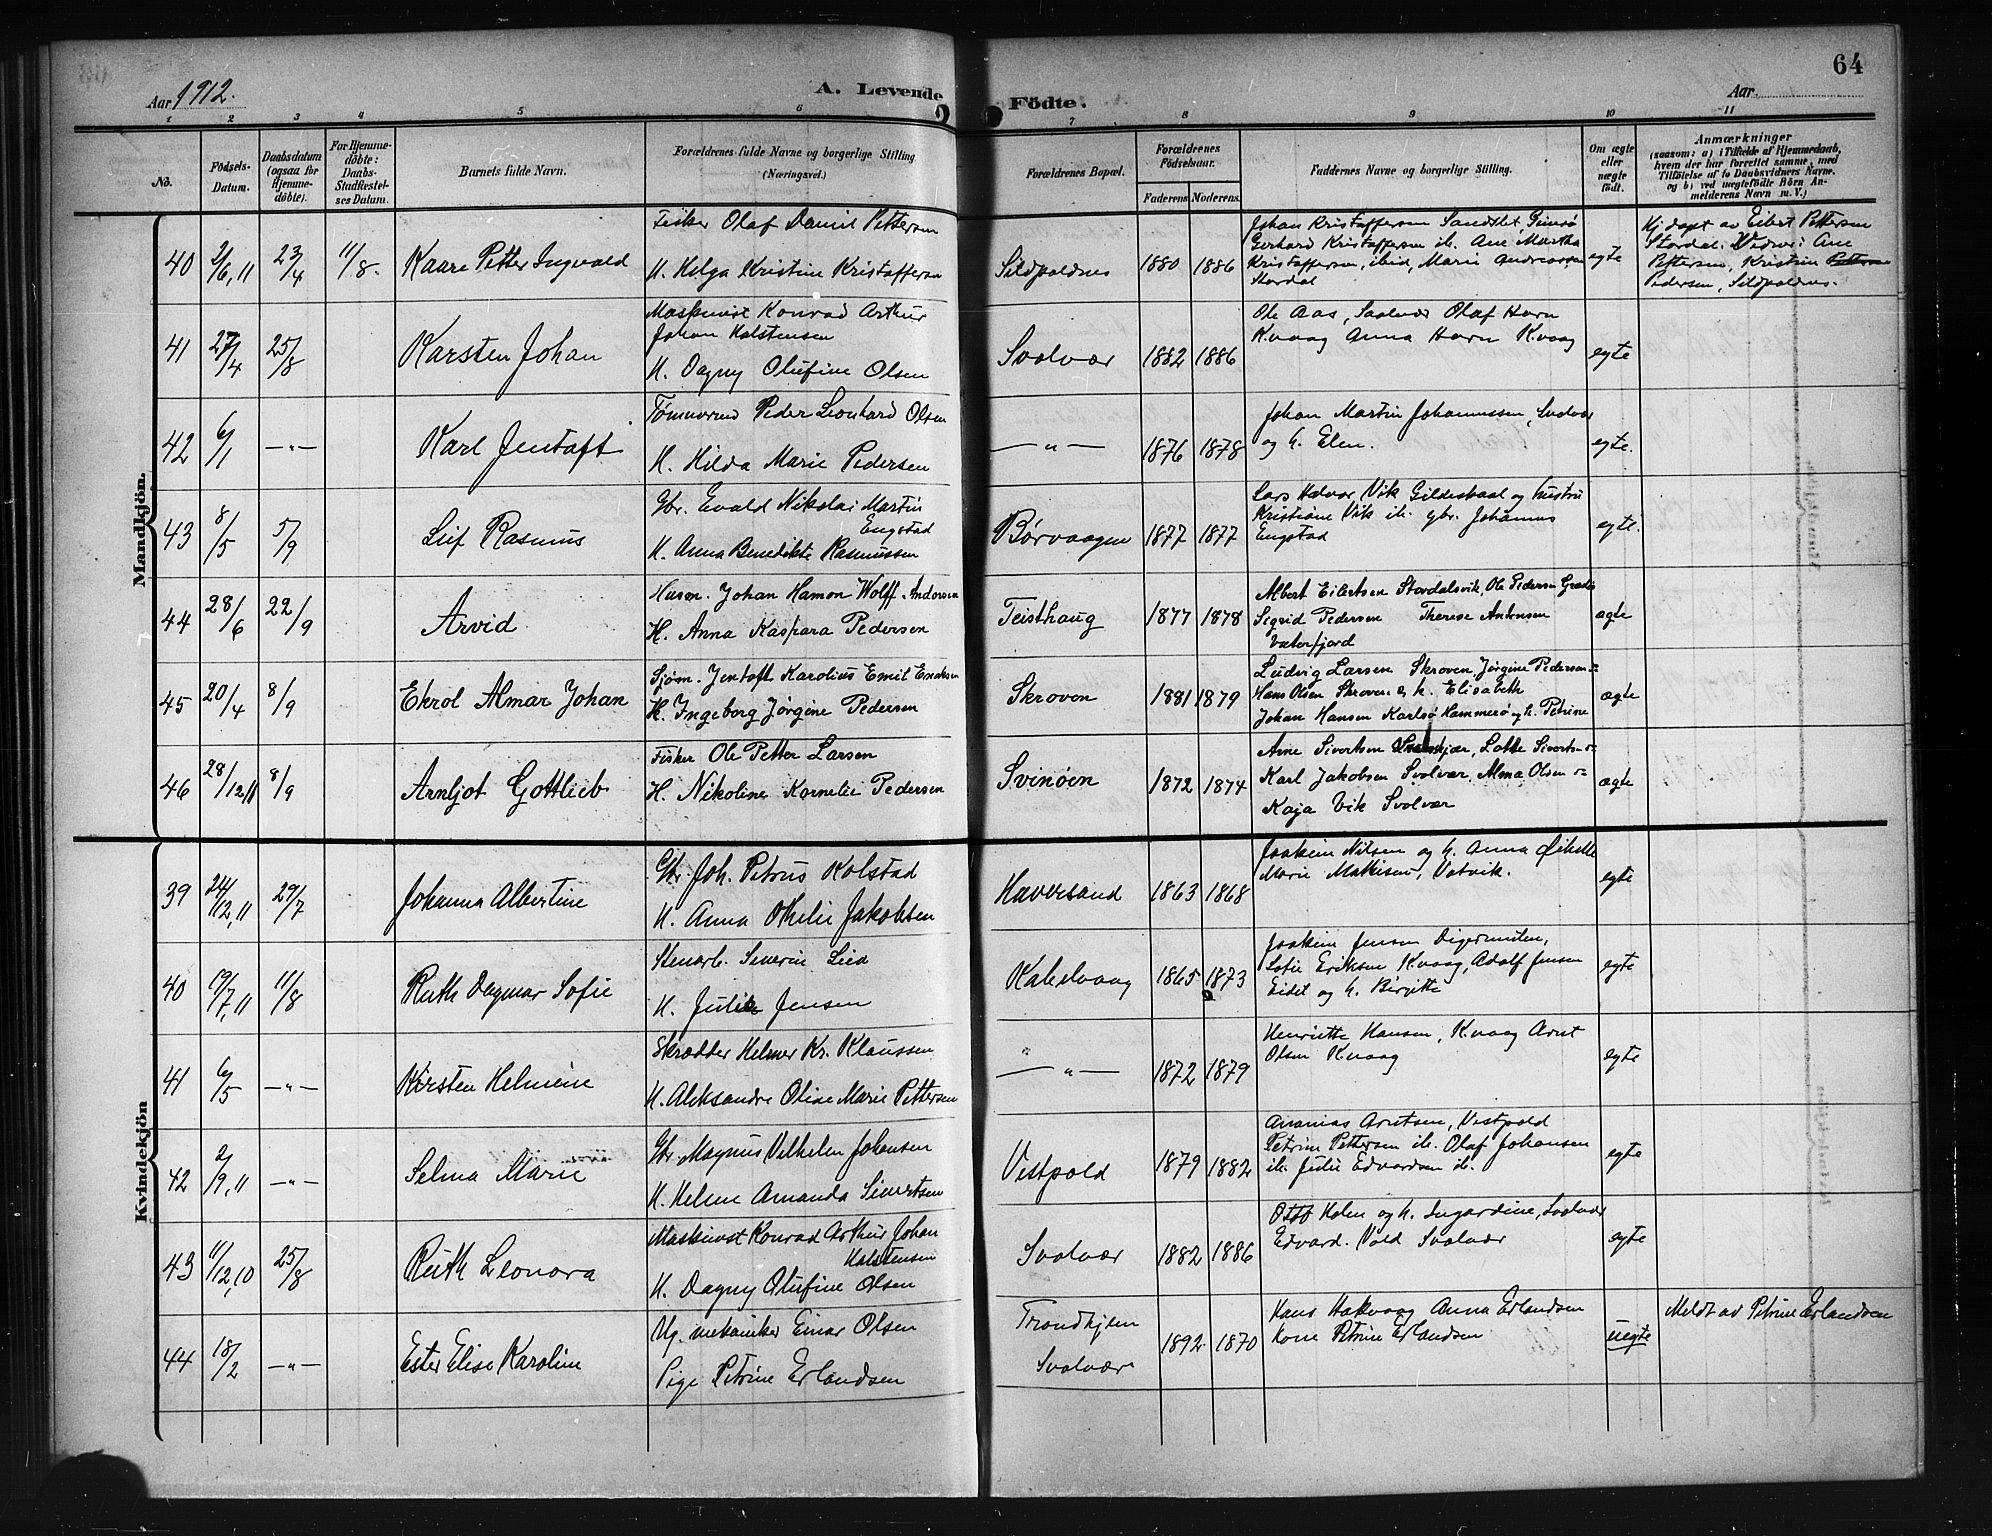 64
Aar 1912.
A. Levende Födte.
Aar
1 2 3 4 5 6 7 8 9 10 11
No.
Födsels-Datum.
Daabsdatum (ogsaa for Hjemmedöbte).
For Hjemmedöbte: Daabs-Stadfestelses Datum.
Barnets fulde Navn.
Forældrenes fulde Navne og borgerlige Stilling (Næringsvei.)
Forældrenes Bopæl.
Forældrenes Födselsaar.
Faderens. Moderens.
Faddernes Navne og borgerlige Stilling.
Om ægte eller uægte födt.
Anmærkninger (saasom: a) i Tilfælde af Hjemmedaab, hvem der har forrettet samme, med Tilföielse af to Daabsvidners Navne. og b) ved uægtefödte Börn Anmelderens Navn m. V.)
Mandkjön.
40 2/6,11 23/4 11/8. Kaare Petter Ingvald
Fisker Olaf Daniel Pettersen
H. Helga Kristine Kristoffersen
Sildpoldnes 1880 1886
Johan Kristoffersen Sandslet, Gimsø
Gerhard Kristoffersen ib. Ane Martha
Kristoffersen, ibid, Marie Andreassen
Stordal
egte
Hj.døpt av Eibert Pettersen
Stordal. Vidner: Ane
Pettersen, Kristine
Pedersen, Sildpoldnes.
41 27/4 25/8 Karsten Johan
Maskinist Konrad Arthur
Johan Holstensen
H. Dagny Olufine Olsen
Svolvær 1882 1886
Ole Aas, Svolvær Olaf Horn
K.vaag Anna Horn K.vaag
egte
42 6/1 —"— Karl Jentoft
Tømmermd Peder Leonhard Olsen
H. Hilda Marie Pedersen
—"— 1876 1878
Johan Martin Johannessen, Svolvær
og h. Elen.
egte.
43 8/5 5/9 Leif Rasmus
Gbr. Evald Nikolai Martin
Engstad
H. Anna Benedikte Rasmussen
Børvaagen 1877 1877
Lars Halvor Vik Gildeskaal og hustru
Kristiane Vik ib. gbr. Johannes
Engstad
egte.
44 28/6 22/9 Arvid
Husm. Johan Hamon Wolff Andorsen
H. Anna Kaspara Pedersen
Teisthaug 1877 1878
Albert Eilertsen Stordalsvik, Ole Pedersen
Sigrid Pedersen Therese Antonsen
Vaterfjord
ægte
45 20/4 8/9 Ekrol Almar Johan
Sjøm. Jentoft Karolius Emil Enoksen
H. Ingeborg Jørgine Pedersen
Skroven 1881 1879
Ludvig Larsen Skroven, Jørgine Pedersen
Hans Olsen Skroven og h. Elisabeth
Johan Hansen Karlsø Hammerø og h. Petrine
ægte
46 28/12,11 8/9 Arnljot Gottlieb
Fisker Ole Petter Larsen
H. Nikoline Kornelie Pedersen
Svinøen 1872 1874
Arne Sivertsen Lotte Sivertsen
Karl Jakobsen Svolvær, Alma Olsen
Kaja Vik Svolvær
ægte
Kvindekjön
39 24/12,11 29/7 Johanna Albertine
Gbr. Joh. Petrus Kolstad
H. Anna Othelie Jakobsen
Haversand 1863 1868
Joakim Nilsen og h. Anna Øihelle
Marie Mathisen, Vatvik.
egte
40 19/7,11 11/8 Ruth Dagmar Sofie
Stenarb. Severin Lied
H. Julie Jensen
Kabelvaag 1865 1873
Joakim Jensen Digermulen,
Sofie Eriksen K.vaag, Adolf Jensen
Eidet og h. Birgitte
egte
41 6/5 —"— Kirsten Helmine
Skrædder Helmer Kr. Klaussen
H. Aleksandre Oline Marie Pettersen
—"— 1872 1879
Henriette Hansen, K.vaag Arnt
Olsen K.vaag
egte
42 2/9,11 —"— Selma Marie
Gbr Magnus Vilhelm Johansen
H. Helene Amanda Sivertsen
Vestpold 1879 1882
Ananias Arntsen, Vestpold
Petrine Pettersen ib. Olaf Johansen
ib. Julie Edvardsen ib.
egte
43 11/12,10 25/8 Ruth Leonora
Maskinist Konrad Arthur Johan
Holstensen
H. Dagny Olufine Olsen
Svolvær 1882 1886
Otto Holm og h. Ingardine, Svolvær
Edvard Vold Svolvær
egte
44 18/2 —"— Ester Elise Karoline
Ug. mekaniker Einar Olsen
Pige Petrine Erlandsen
Trondhjem
Svolvær
1892 1870
Hans Hakvaag Anna Erlandsen
kone Petrine Erlandsen
uegte
Meldt av Petrine Erlandsen